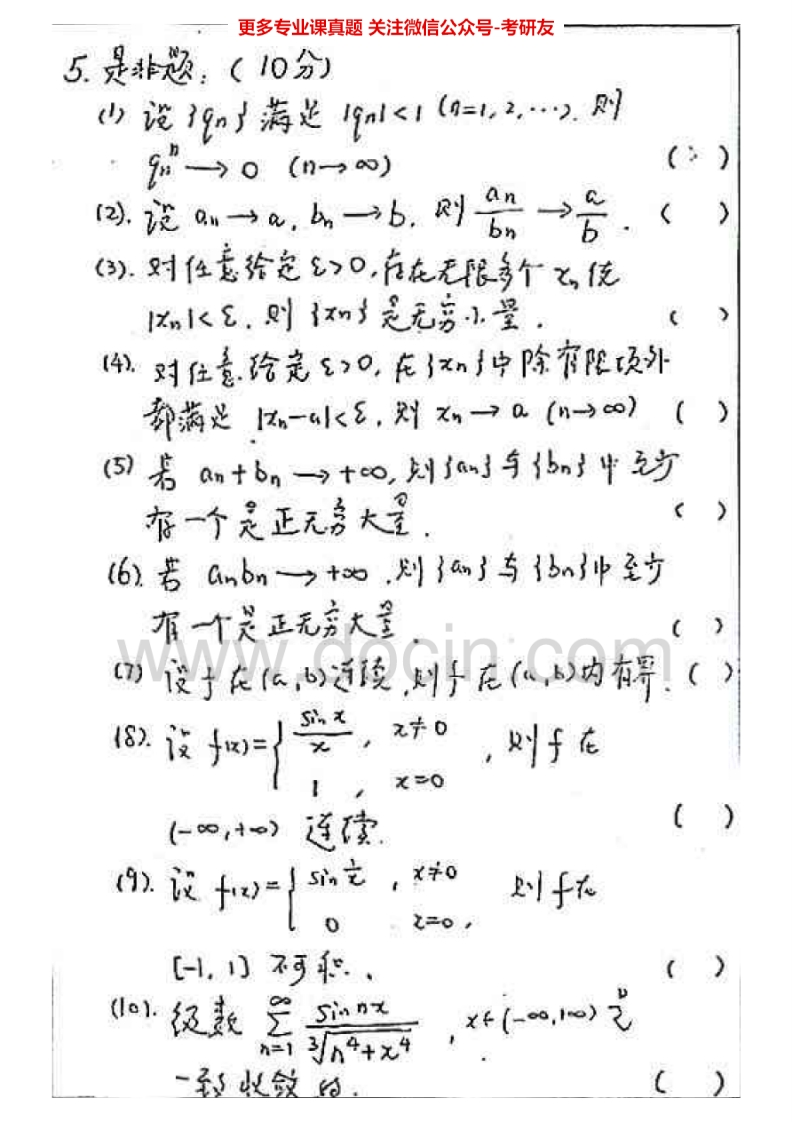 更多专业课真题 关注微信公众号-考研友
5. 是非题: (10分)
(1) 设{qn}满足 |qn|<1 (n=1,2,…). 则
qnⁿ → 0 (n→∞) ( )
(2). 设 an→a, bn→b. 则 an/bn → a/b . ( )
(3). 对任意给定 ε>0, 存在无限多个 xn 使
|xn|<ε. 则{xn}是无穷小量. ( )
(4). 对任意给定 ε>0, 在{xn}中除有限项外
都满足 |xn-a|<ε, 则 xn→a (n→∞) ( )
(5) 若 an+bn → +∞, 则{an}与{bn}中至少
有一个是正无穷大量. ( )
(6). 若 anbn → +∞, 则{an}与{bn}中至少
有一个是正无穷大量. ( )
www.docin.com
(7) 设f在(a,b)连续,则f在(a,b)内有界. ( )
(8). 设 f(x)={ sin x/x , x≠0
1 , x=0
, 则f在
(-∞,+∞) 连续. ( )
(9). 设 f(x)={ sin 1/x , x≠0
0 x=0,
则f在
[-1, 1] 不可积. ( )
(10). 级数 ∞∑n=1 sin nx/∛(n⁴+x⁴) , x∈(-∞,+∞) 是
一致收敛的. ( )